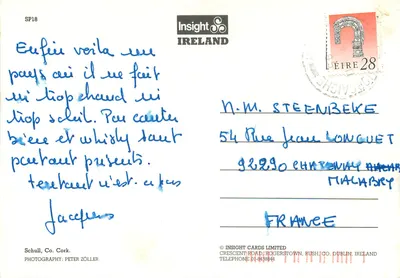 SP18
Insight
IRELAND
ÉIRE 28
Enfin voila un
pays où il ne fait
ni trop chaud ni
trop soleil. Par contre
bière et whisky sont
partout présents.
tentant n'est-ce pas
Jacques
N.M. STEENBEKE
54 Rue Jean LONGUET
92290 CHATENAY
MALABRY
FRANCE
Schull, Co. Cork.
PHOTOGRAPHY: PETER ZÖLLER
© INSIGHT CARDS LIMITED
CRESCENT ROAD, ROGERSTOWN, RUSH, CO. DUBLIN, IRELAND
TELEPHONE